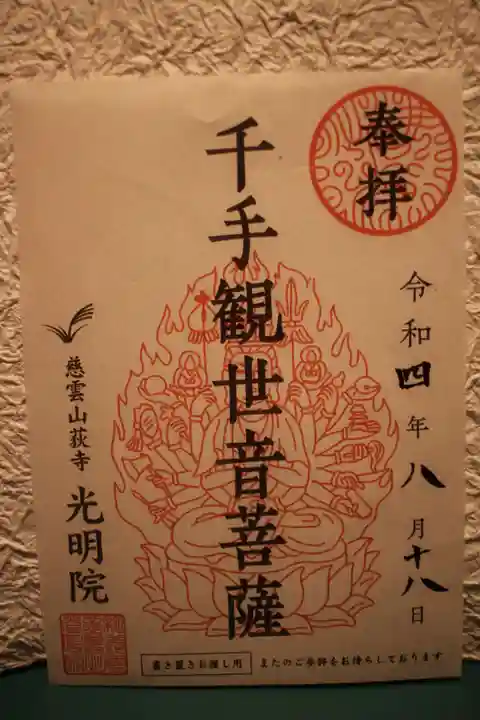 奉拝
令和四年八月十八日
千手観世音菩薩
慈雲山荻寺 光明院
書き置きお渡し用
またのご参詣をお待ちしております